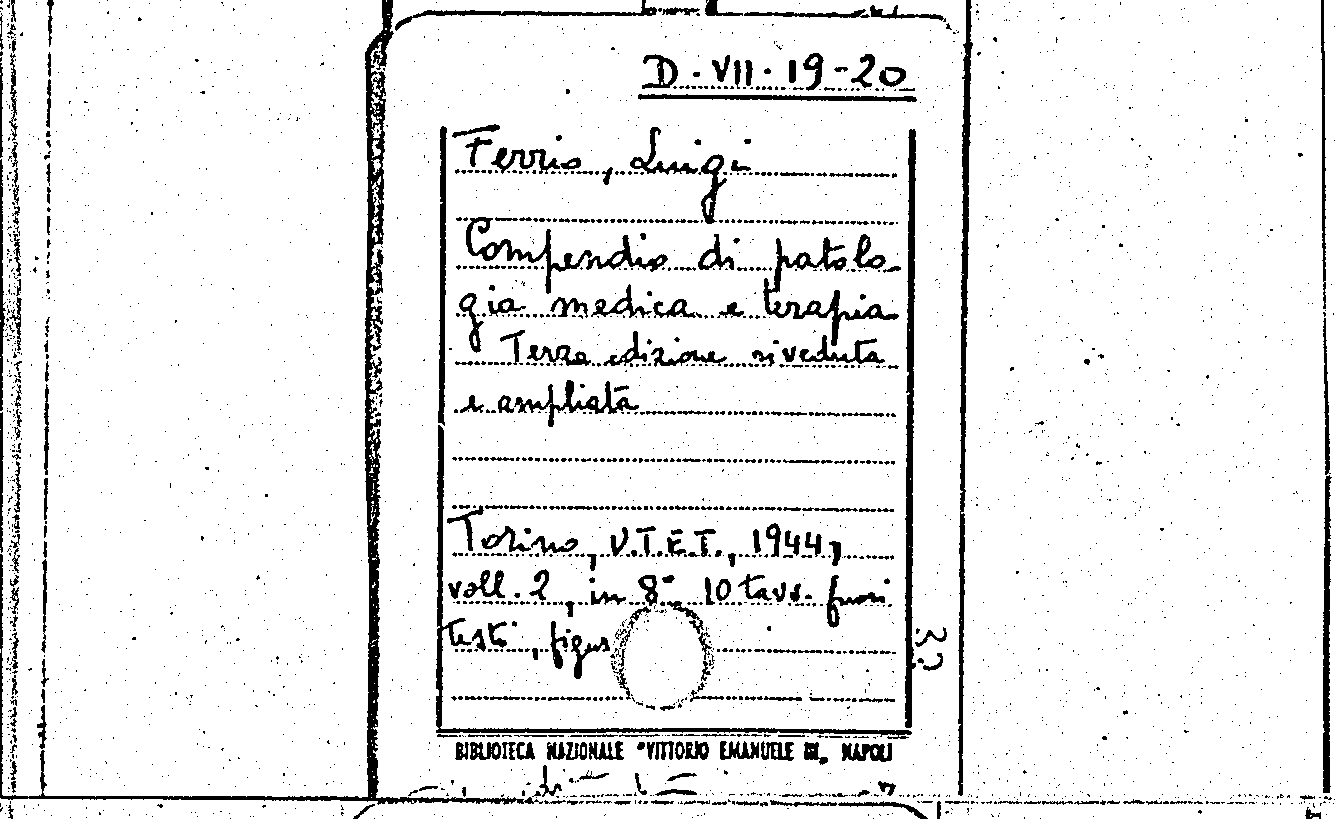 D. VII. 19-20
Ferrio, Luigi
Compendio di patolo
gia medica e terapia
Terza edizione riveduta
e ampliata
Torino, U.T.E.T., 1944,
voll. 2, in 8° 10 tavv. fuori
testo, figur
BIBLIOTECA NAZIONALE "VITTORIO EMANUELE III„ NAPOLI